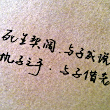 死生契阔,与子成说
执子之手,与子偕老